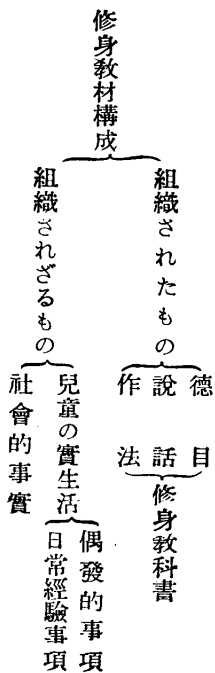 修身敎材構成
組織されたもの
德目
說話
作法
修身敎科書
組織されざるもの
兒童の實生活
偶發的事項
日常經驗事項
社會的事實